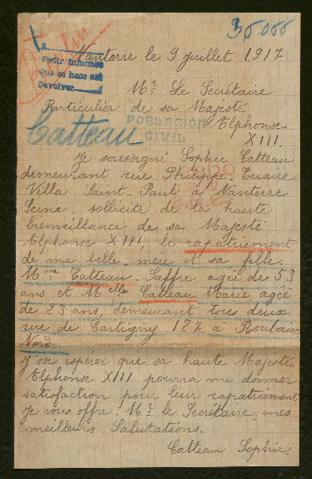 35.000
Nanterre le 9 juillet 1917
Pedir informes
Que se haga así
Devolver
Mr Le Secrétaire
Particulier de sa Majesté
POBLACIÓN
CIVIL
Alphonse
XIII.
Catteau
Je soussigné Sophie Catteau
demeurant rue Philippe-Triaire
Villa Saint-Paul à Nanterre
Seine, sollicite de la haute
bienveillance de sa Majesté
Alphonse XIII, le rapatriement
de ma belle mère et sa fille.
Mme Catteau. Saffre, agée de 53
ans et Mlle Catteau Marie, agée
de 23 ans, demeurant toues deux
rue de Cartigny 187 à Roubaix
Nord.
J'ose espérer que sa haute Majesté
Alphonse XIII pourra me donner
satisfaction pour leur rapatriement
Je vous offre. Mr. le Secrétaire, mes
meilleurs Salutations.
Catteau Sophie